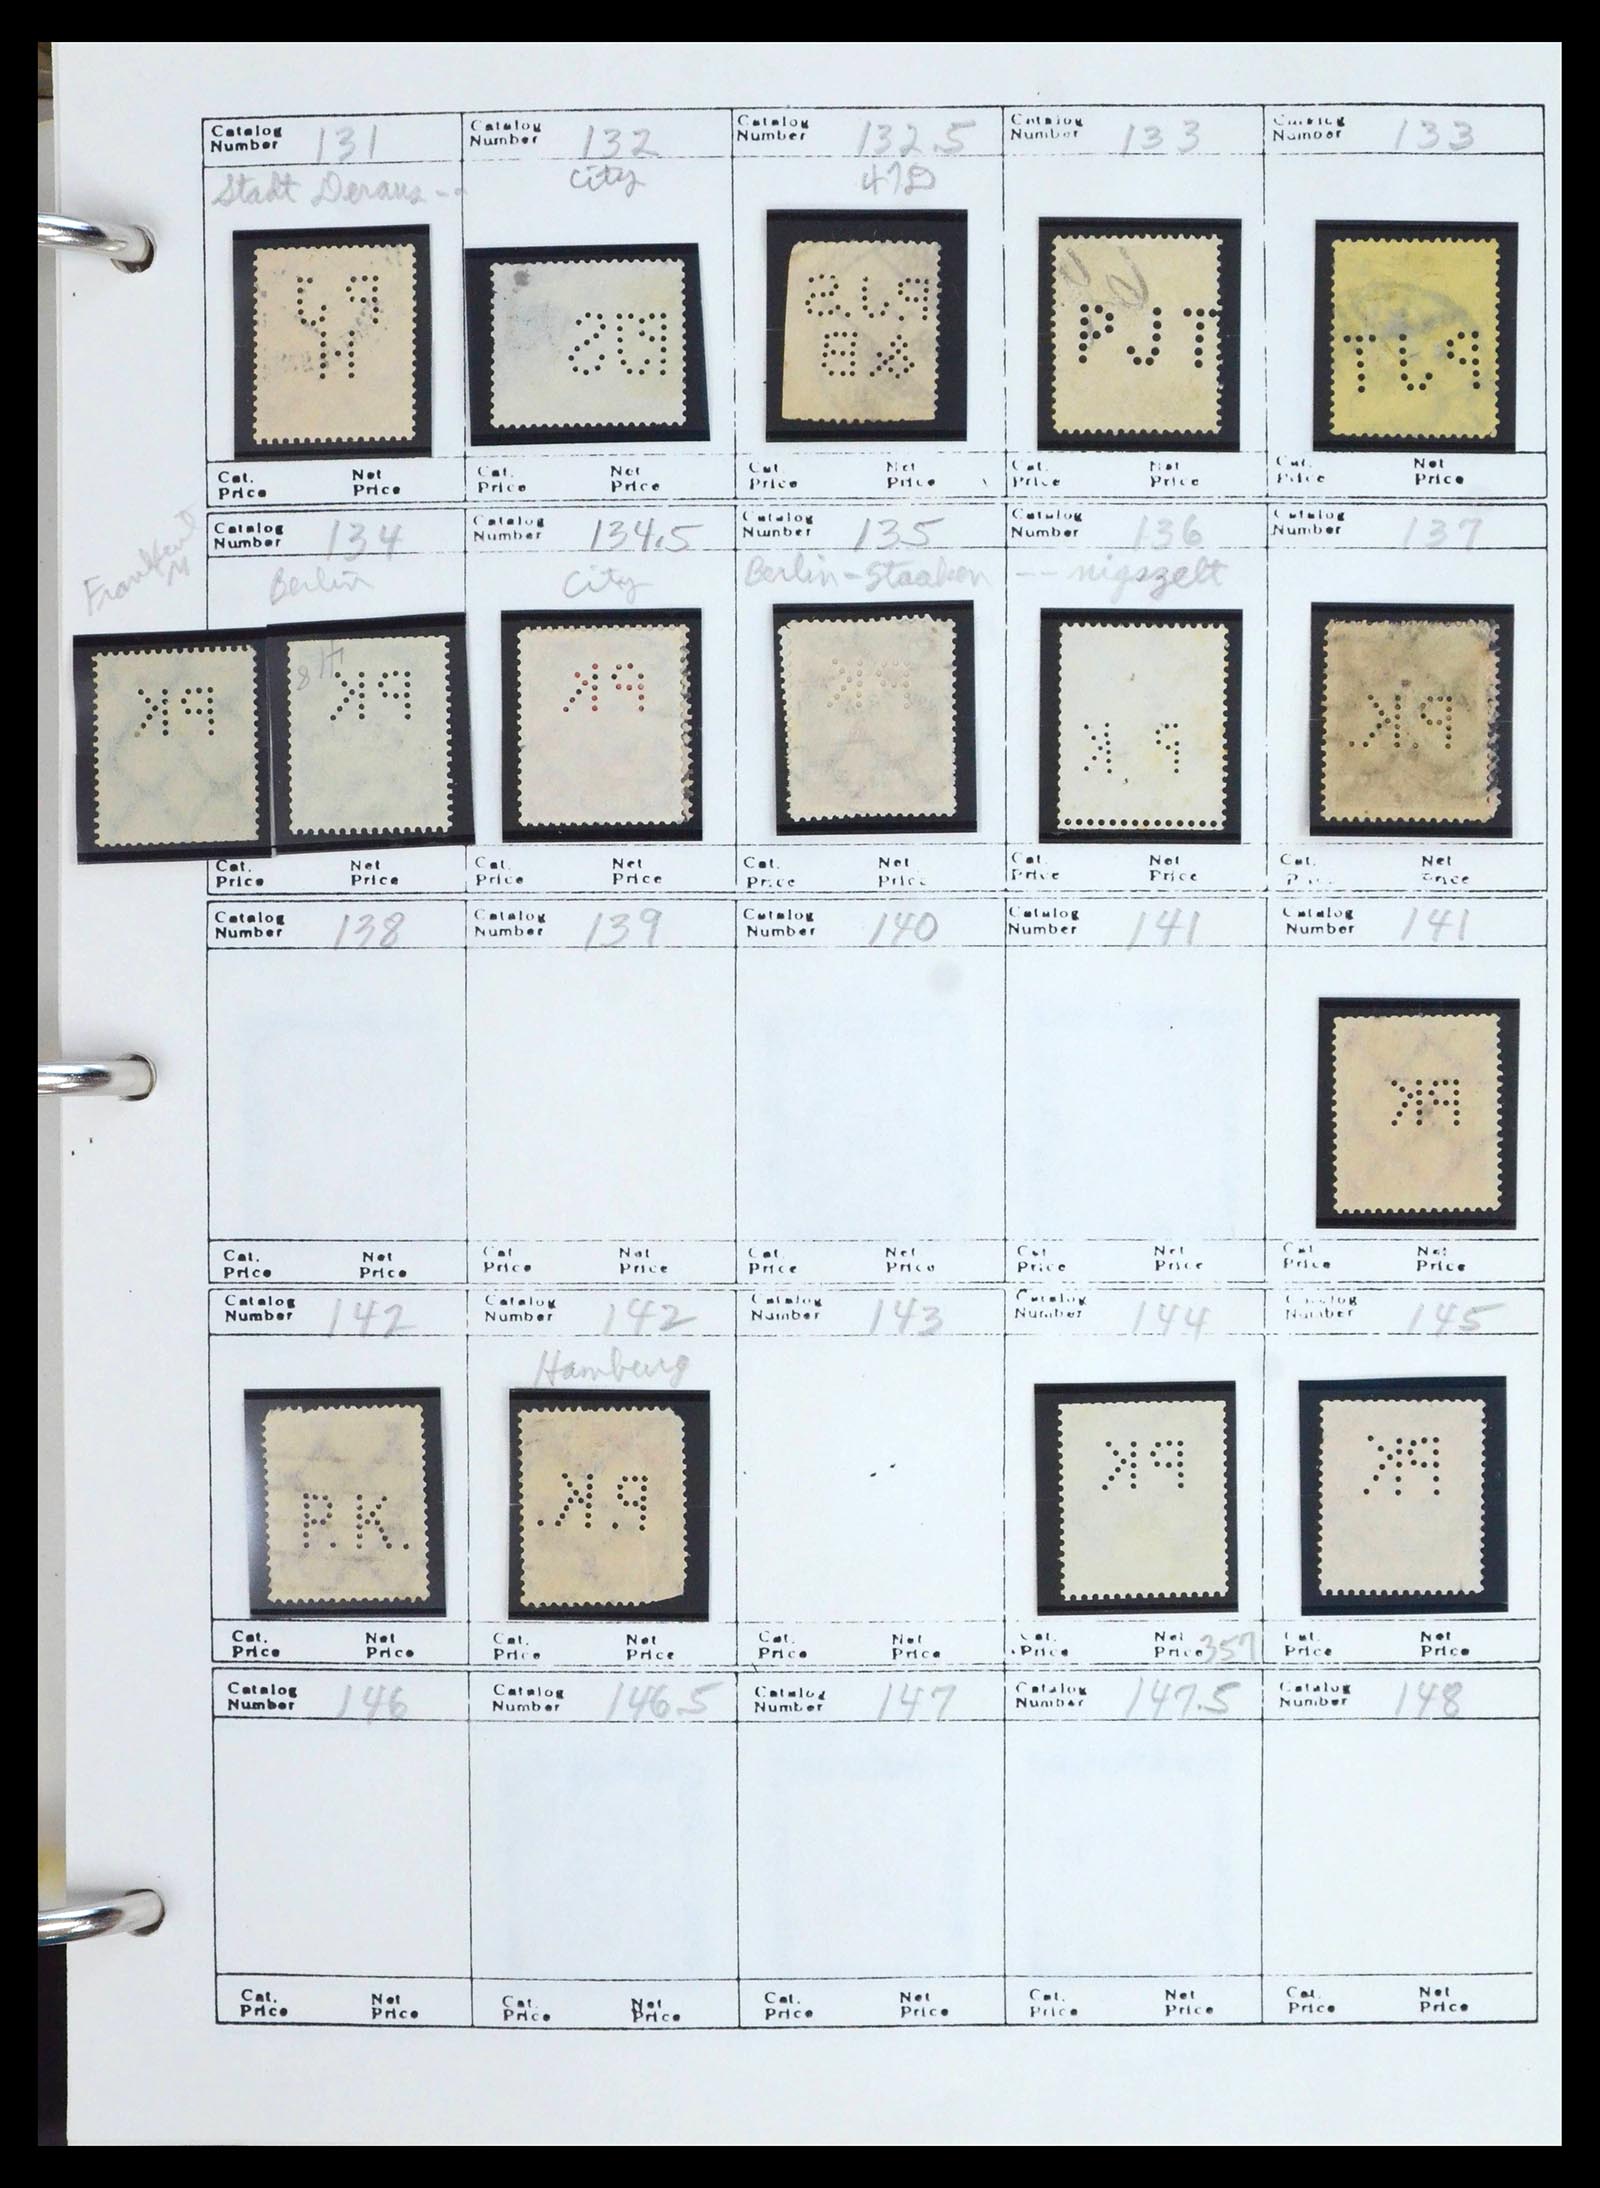 Catalog Number 131 Catalog Number 132 Catalog Number 132.5 Catalog Number 133 Catalog Number 133
Stadt City 47D
P J H PJS P.J.S & B PJT PJT
Cat. Price Net Price Cat. Price Net Price Cat. Price Net Price Cat. Price Net Price Cat. Price Net Price
Catalog Number 134 Catalog Number 134.5 Catalog Number 135 Catalog Number 136 Catalog Number 137
Berlin City Berlin-Staaken --nigszelt
PK PK PK PK P.K P.K.
Cat. Price Net Price Cat. Price Net Price Cat. Price Net Price Cat. Price Net Price Cat. Price Net Price
Catalog Number 138 Catalog Number 139 Catalog Number 140 Catalog Number 141 Catalog Number 141
PK
Cat. Price Net Price Cat. Price Net Price Cat. Price Net Price Cat. Price Net Price Cat. Price Net Price
Catalog Number 142 Catalog Number 142 Catalog Number 143 Catalog Number 144 Catalog Number 145
Hamburg
P.K. P.K. PK PK
Cat. Price Net Price Cat. Price Net Price Cat. Price Net Price Cat. Price Net Price 357 Cat. Price Net Price
Catalog Number 146 Catalog Number 146.5 Catalog Number 147 Catalog Number 147.5 Catalog Number 148
Cat. Price Net Price Cat. Price Net Price Cat. Price Net Price Cat. Price Net Price Cat. Price Net Price